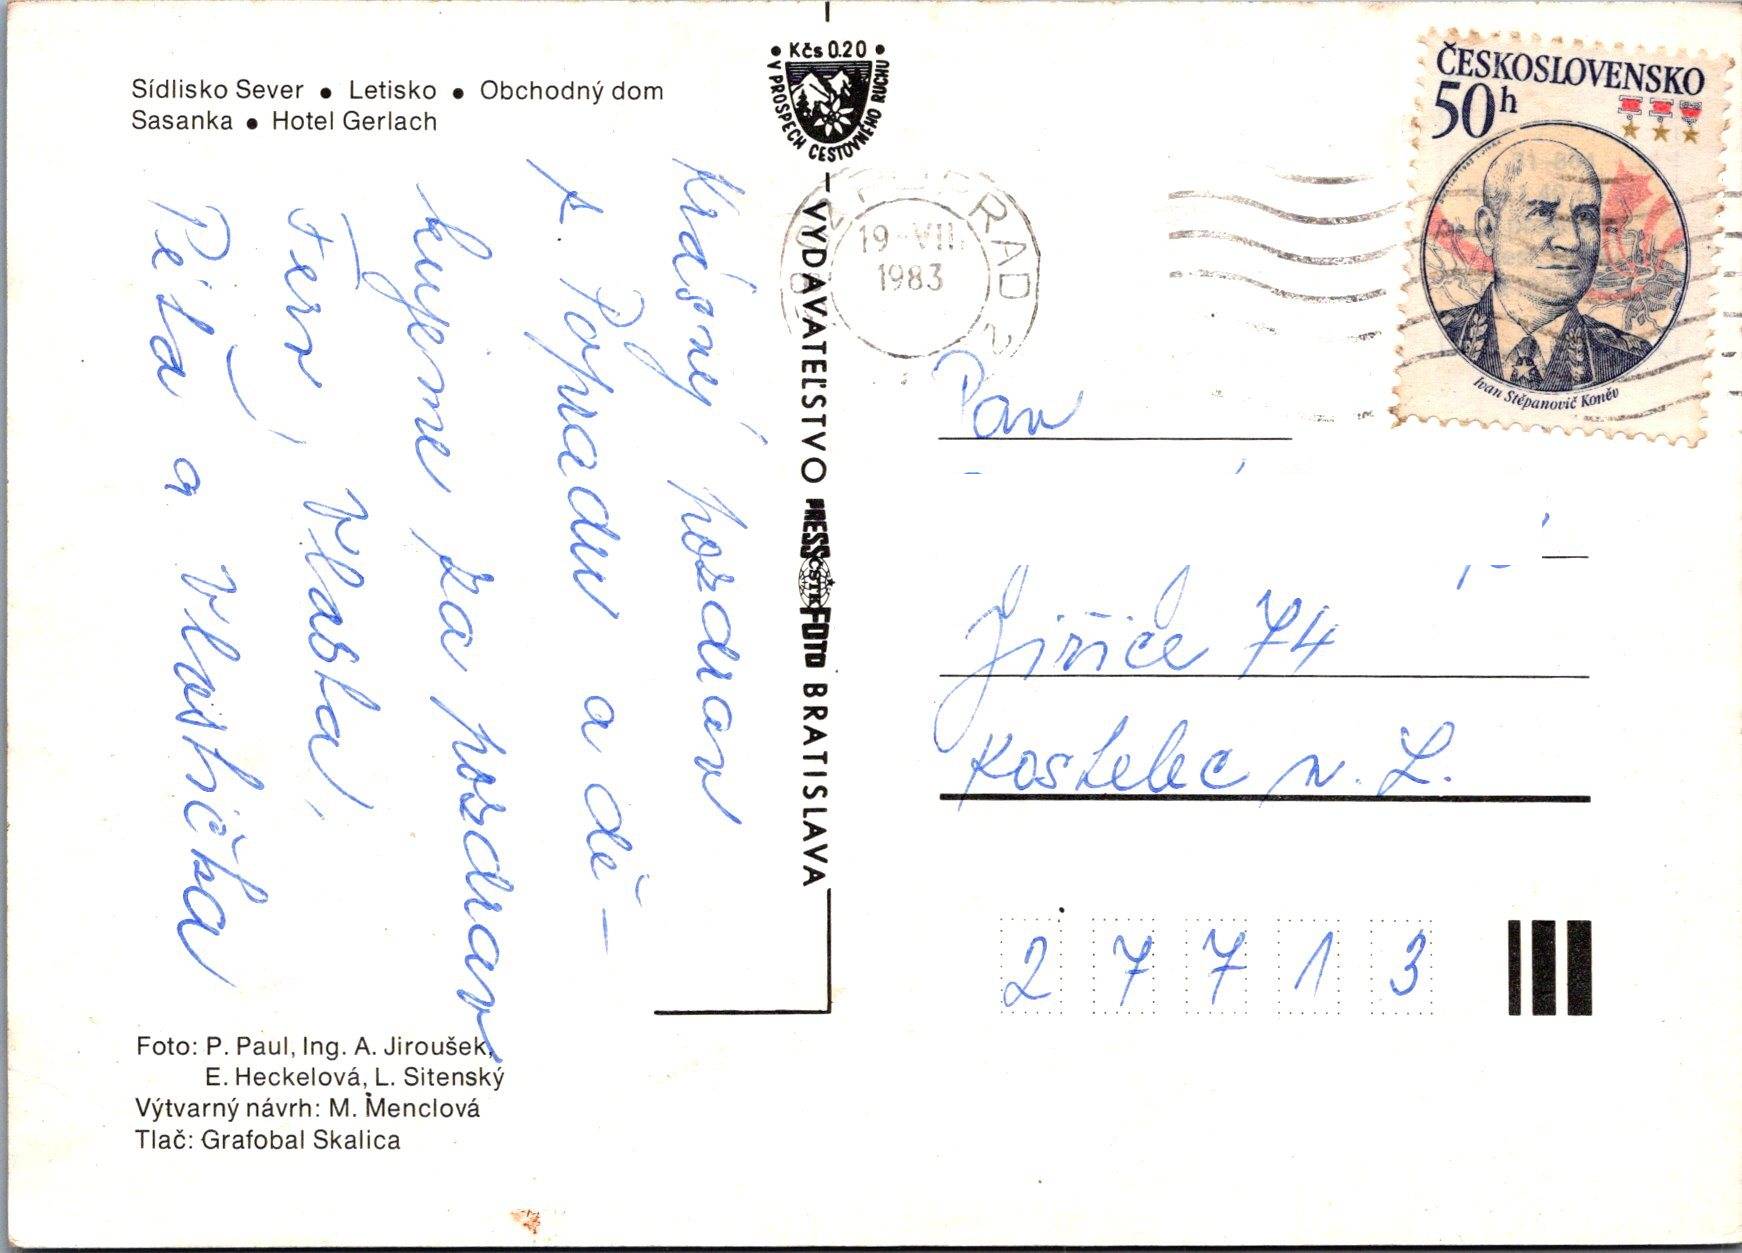 Sídlisko Sever • Letisko • Obchodný dom
Sasanka • Hotel Gerlach
• Kčs 0.20 •
V PROSPECH CESTOVNÉHO RUCHU
VYDAVATEĽSTVO PRESSFOTO BRATISLAVA
ČSTK
Krásný pozdrav
z Popradu a dě-
kujeme za pozdrav
Fery, Vlasta,
Péťa a Vlastička
Foto: P. Paul, Ing. A. Jiroušek,
E. Heckelová, L. Sitenský
Výtvarný návrh: M. Menclová
Tlač: Grafobal Skalica
POPRAD 2
19-VII.
1983
ČESKOSLOVENSKO
50h
Ivan Stěpanovič Koněv
Pan
Jiřice 74
Kostelec n. L.
27713